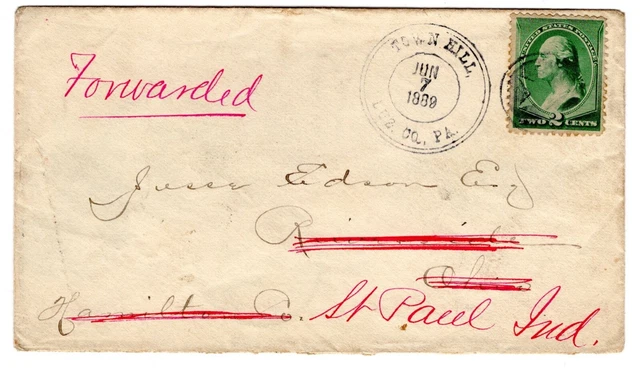 Forwarded
TOWN HILL,
JUN
7
1889
LUZ. CO., PA.
UNITED STATES POSTAGE
TWO 2 CENTS
Jesse Edson Esq
Ohio
Hamilton Co. St Paul Ind.